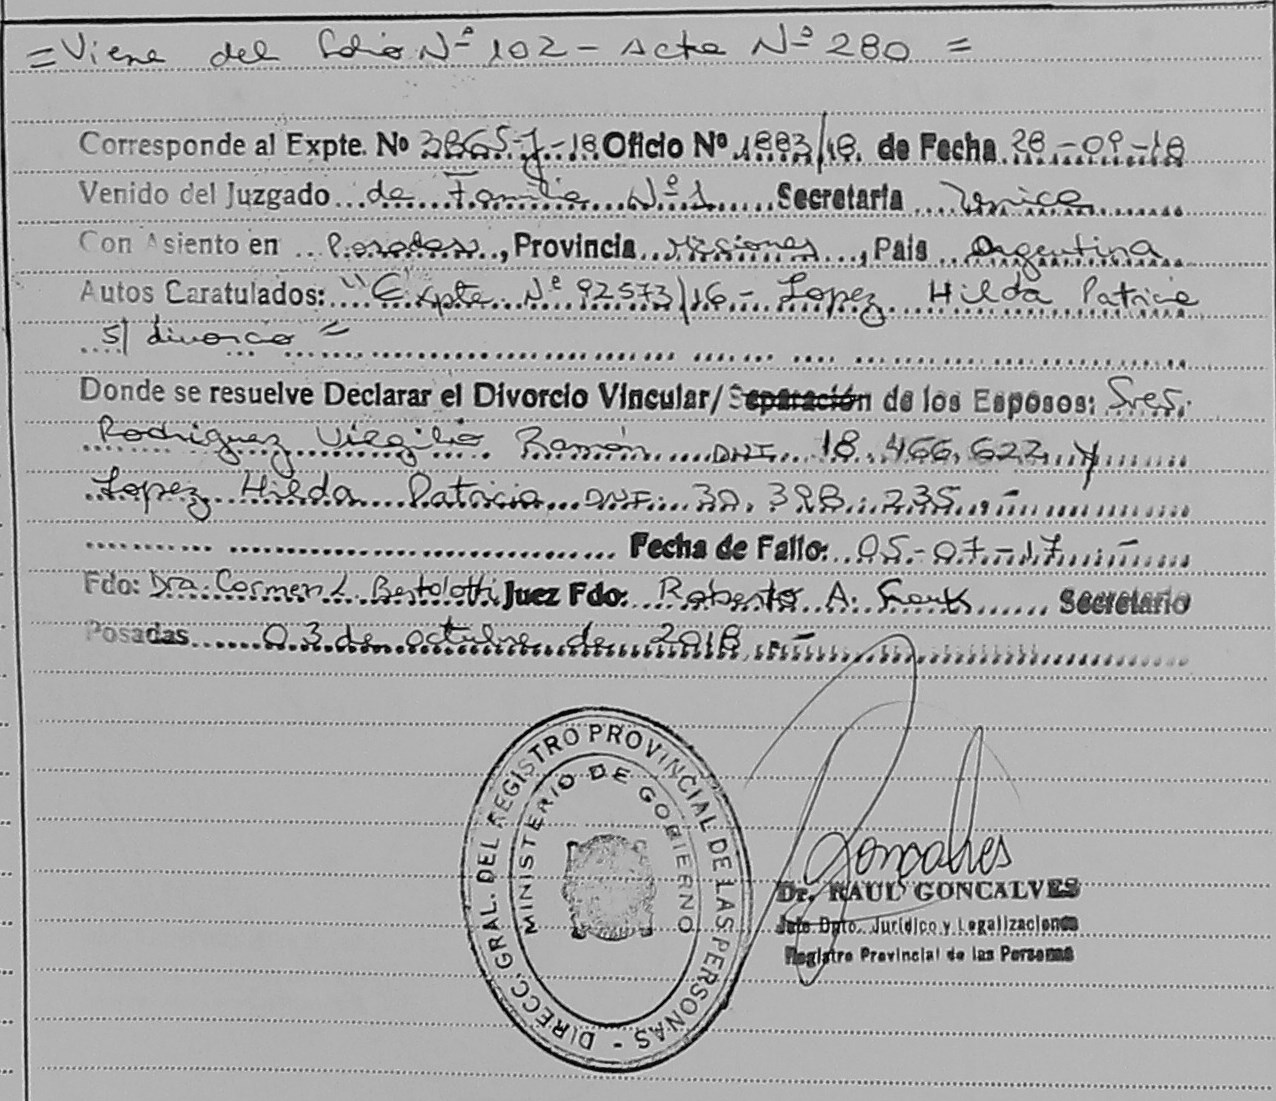 = Viene del folio Nº 102 - Acta Nº 280 =
Corresponde al Expte. Nº 3865-J-18 Oficio Nº 1883/18. de Fecha 28-09-18
Venido del Juzgado de Familia Nº 1 Secretaria Unica
Con Asiento en Posadas, Provincia Misiones, País Argentina
Autos Caratulados: "Expte Nº 92573/16 - Lopez Hilda Patricia
s/ divorcio =
Donde se resuelve Declarar el Divorcio Vincular/Separación de los Esposos: Sres.
Rodriguez Virgilio Ramón DNI 18.466.622 y
Lopez Hilda Patricia DNI: 30.398.235.-
Fecha de Fallo: 05-07-17.-
Fdo: Dra. Carmen L. Bertolotti Juez Fdo: Roberto A. Secretario
Posadas 03 de octubre de 2018.-
DIRECC. GRAL. DEL REGISTRO PROVINCIAL DE LAS PERSONAS -
MINISTERIO DE GOBIERNO
Goncalves
Dr. RAUL GONCALVES
Jefe Dpto. Jurídico y Legalizaciones
Registro Provincial de las Personas